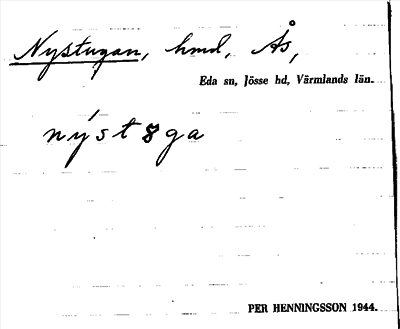 Nystugan, hmd, Ås,
Eda sn, Jösse hd, Värmlands län.
nýst8ga
PER HENNINGSSON 1944.